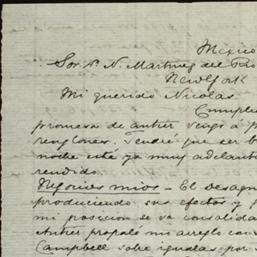 Mexico
Sor. Dn N. Martinez del Rio
New York
Mi querido Nicolas
Cumplie
promesa de antier vengo á p
renglones. Tendré que ser b
noche esta ya muy adelant
rendido.
Negocios mios - El desagu
produciendo sus efectos y p
mi posicion se va consolida
Antier propalé mi arreglo con
Campbell sobre igualas por s